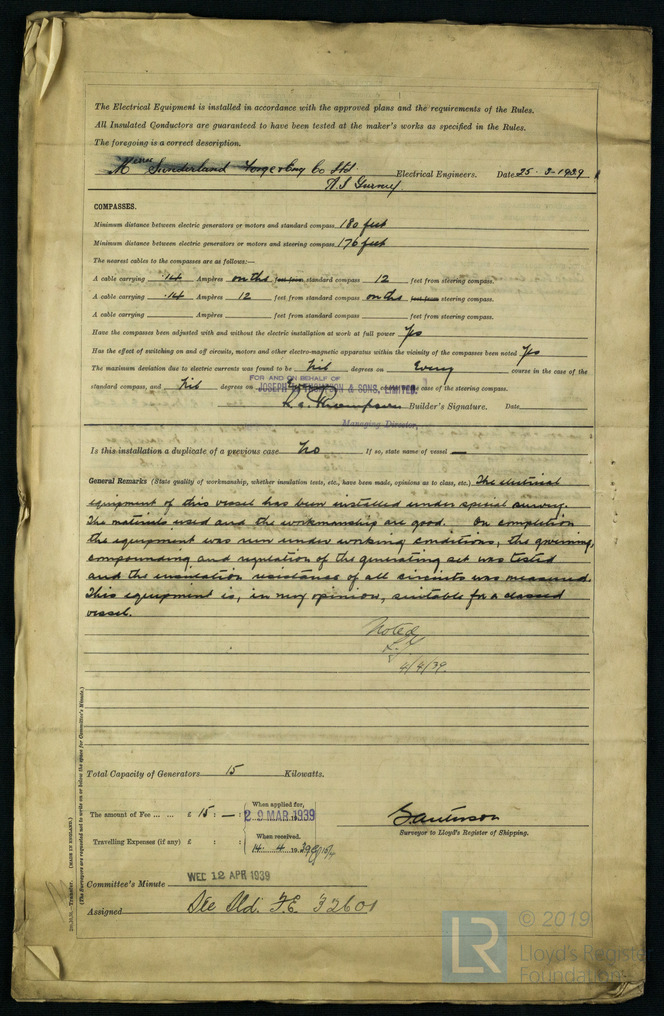 The Electrical Equipment is installed in accordance with the approved plans and the requirements of the Rules.
All Insulated Conductors are guaranteed to have been tested at the maker's works as specified in the Rules.
The foregoing is a correct description.
Messrs Sunderland Forge & Eng Co Ltd
Electrical Engineers. Date 25-3-1939
COMPASSES.
Minimum distance between electric generators or motors and standard compass 180 feet
Minimum distance between electric generators or motors and steering compass 176 feet
The nearest cables to the compasses are as follows:—
A cable carrying .14 Ampères on the feet from standard compass 12 feet from steering compass.
A cable carrying .14 Ampères 12 feet from standard compass on the feet from steering compass.
A cable carrying Ampères feet from standard compass feet from steering compass.
Have the compasses been adjusted with and without the electric installation at work at full power Yes
Has the effect of switching on and off circuits, motors and other electro-magnetic apparatus within the vicinity of the compasses been noted Yes
The maximum deviation due to electric currents was found to be Nil degrees on Every course in the case of the
FOR AND ON BEHALF OF
standard compass, and Nil degrees on Every course in the case of the steering compass.
JOSEPH L. THOMPSON & SONS, LIMITED.
Builder's Signature. Date
Managing Director.
Is this installation a duplicate of a previous case No If so, state name of vessel —
General Remarks (State quality of workmanship, whether insulation tests, etc., have been made, opinions as to class, etc.) The electrical
equipment of this vessel has been installed under special survey.
The materials used and the workmanship are good. On completion
the equipment was run under working conditions, the governing,
compounding and regulation of the generating set was tested
and the insulation resistance of all circuits was measured.
This equipment is, in my opinion, suitable for a classed
vessel.
Noted
4/4/39.
Total Capacity of Generators 15 Kilowatts.
The amount of Fee ... ... £ 15 : — :
When applied for,
29 MAR. 1939
Travelling Expenses (if any) £ : :
When received.
14. 4. 1939
Surveyor to Lloyd's Register of Shipping.
Committee's Minute WED 12 APR 1939
Assigned See Sld. F.E. 32601
(The Surveyors are requested not to write on or below the space for Committee's Minute.)
(MADE IN ENGLAND.)
Transfer.
LR
© 2019
Lloyd's Register
Foundation